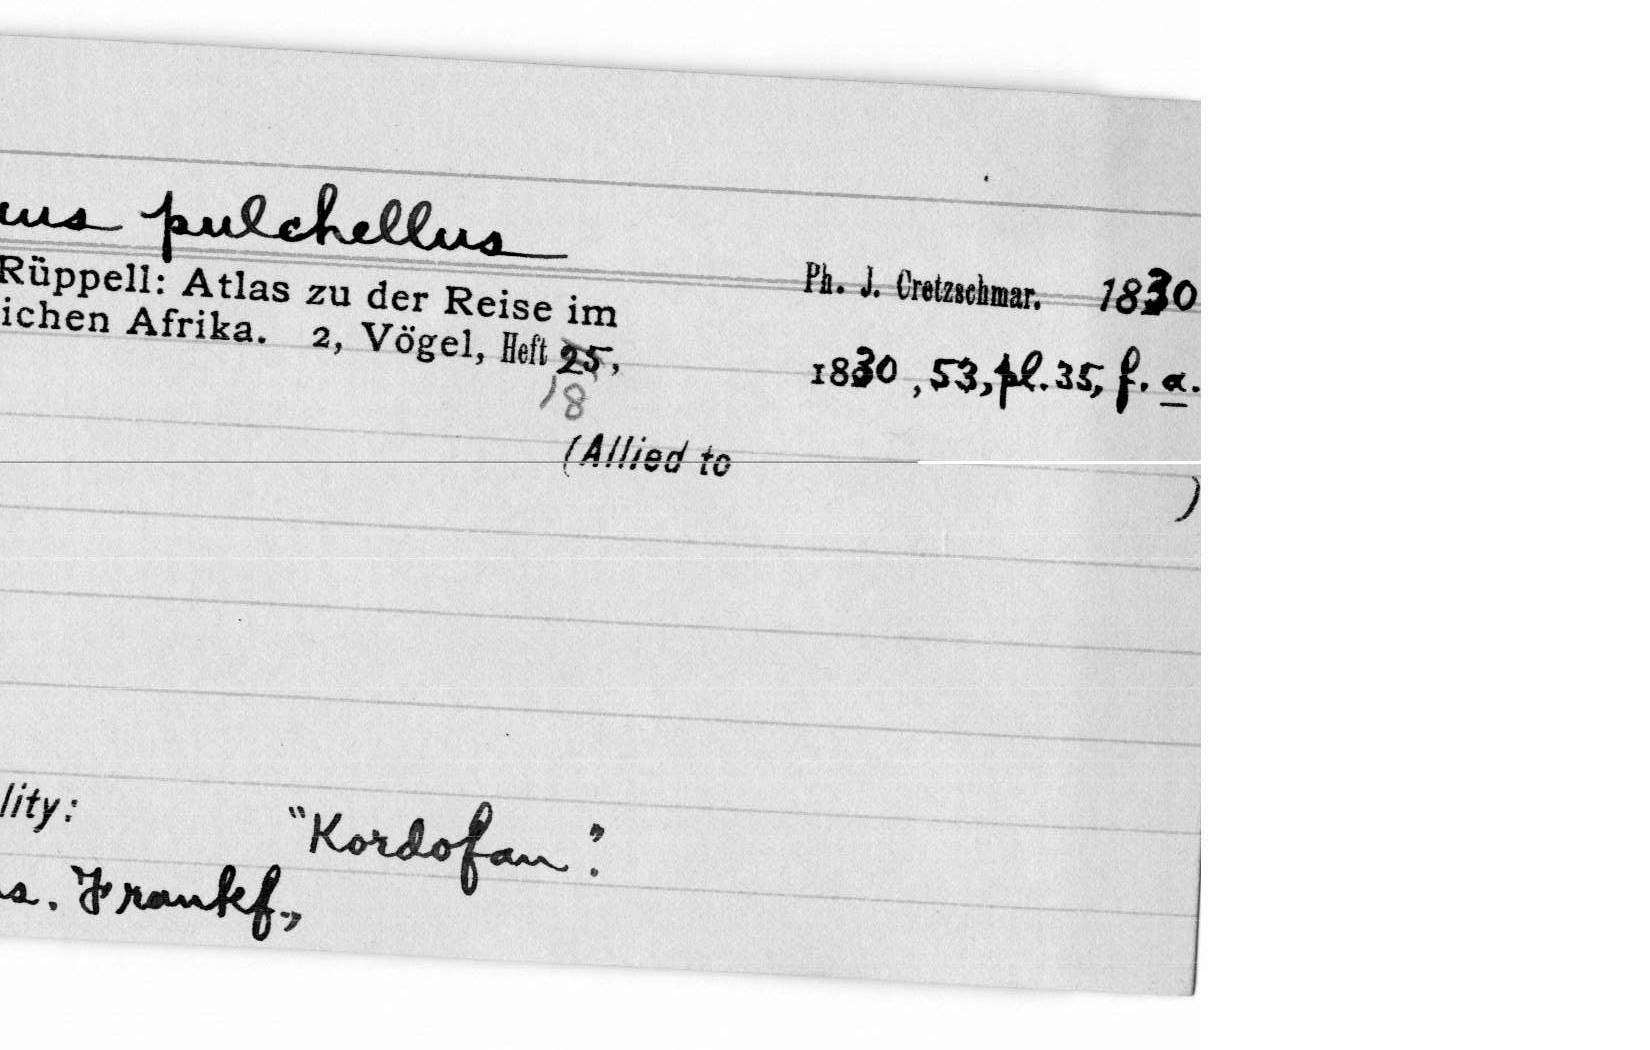 us pulchellus
Ph. J. Cretzschmar. 1830
Rüppell: Atlas zu der Reise im
ichen Afrika. 2, Vögel, Heft 25, 1830, 53, pl. 35, f. a.
18
(Allied to )
lity: "Kordofan".
s. Frankf.,